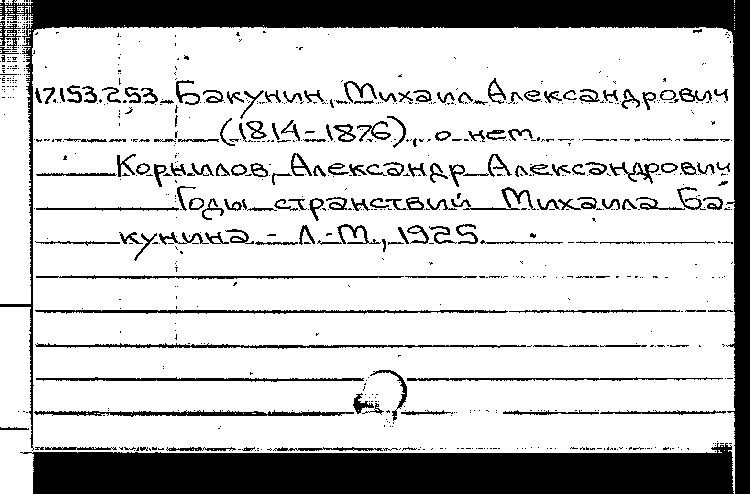 17.153.2.53 Бакунин, Михаил Александрович
(1814-1876), о нем.
Корнилов, Александр Александрович
Годы странствий Михаила Ба-
кунина - Л.-М., 1925.